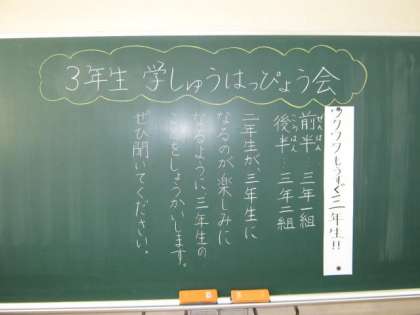 3年生 学しゅうはっぴょう会
ワクワクもうすぐ三年生!!
ぜんはん
前半…三年一組
こうはん
後半…三年二組
二年生が三年生に
なるのが楽しみに
なるように、三年生の
ことをしょうかいします。
ぜひ聞いてください。